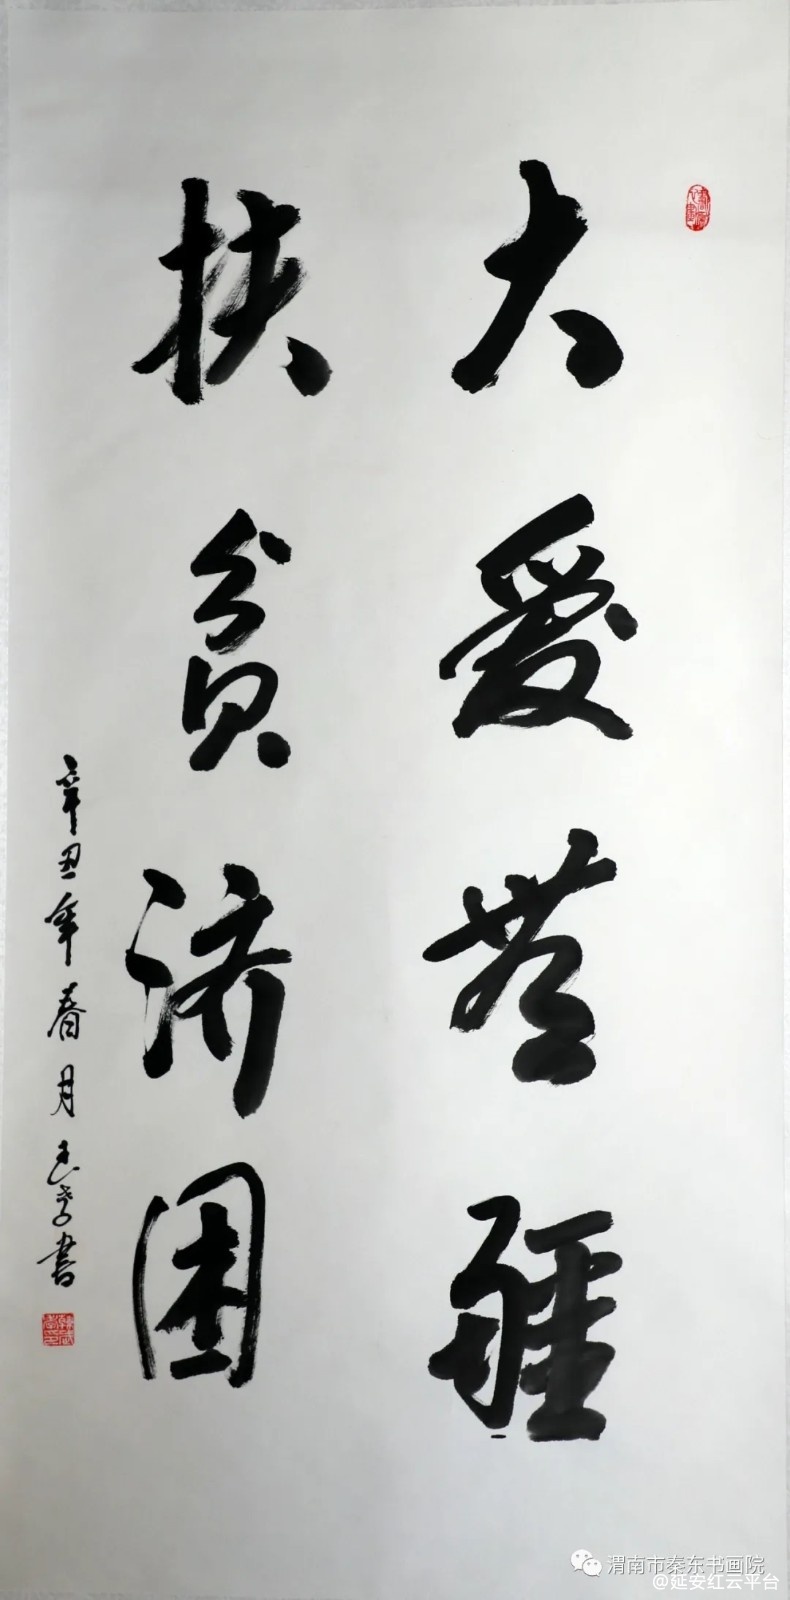 大爱無疆
扶贫济困
辛丑年春月志孝書
渭南市秦东书画院
@延安红云平台